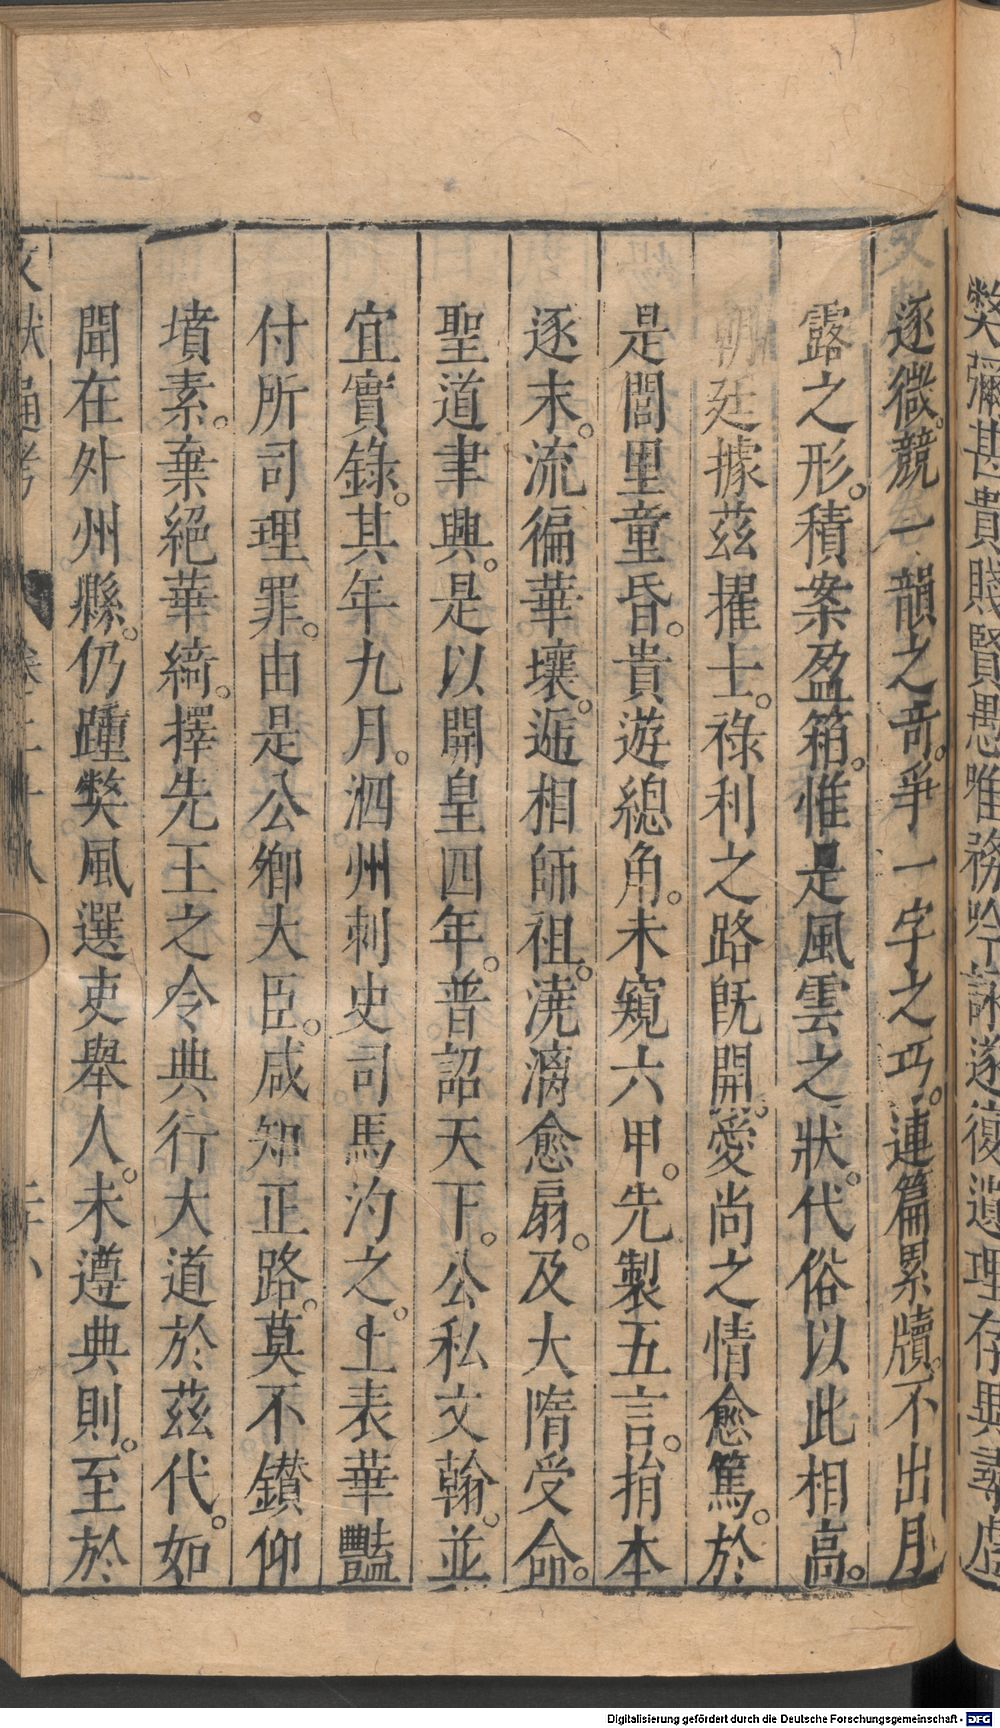 弊彌甚貴賤賢愚唯務吟詠遂復遺理存異尋虛
逐微。競一韻之奇。爭一字之巧。連篇累牘。不出月
露之形。積案盈箱。惟是風雲之狀。代俗以此相高。
朝廷據茲擢士。祿利之路既開。愛尚之情愈篤。於
是閭里童昏。貴遊總角。未窺六甲。先製五言。捐本
逐末。流徧華壤。遞相師祖。澆漓愈扇。及大隋受命。
聖道聿興。是以開皇四年。普詔天下。公私文翰。並
宜實錄。其年九月。泗州刺史司馬汋之。上表華豔
付所司理罪。由是公卿大臣。咸知正路。莫不鑽仰
墳素。棄絕華綺。擇先王之令典行大道於茲代。如
聞在外州縣。仍踵弊風選吏舉人。未遵典則。至於
文獻通考 卷二十八
Digitalisierung gefördert durch die Deutsche Forschungsgemeinschaft - DFG